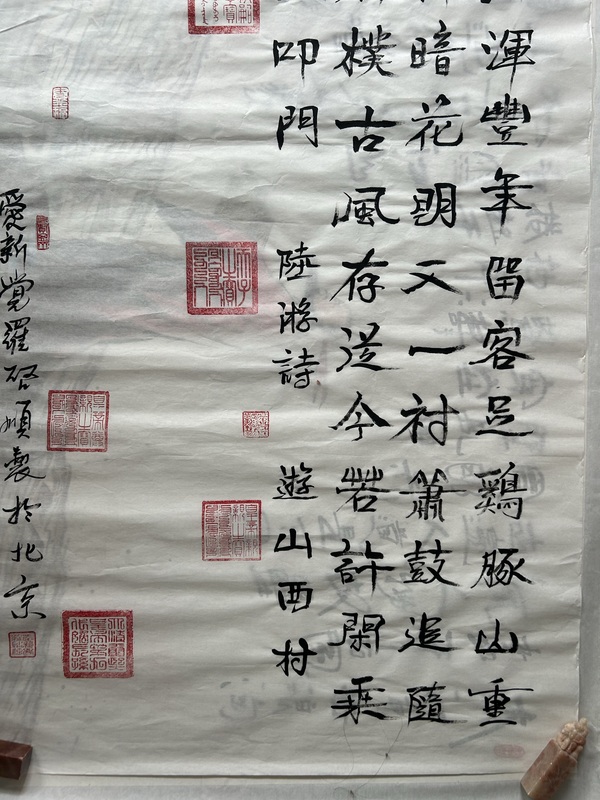 渾豐年留客足鷄豚山重
暗花明又一村簫鼓追隨
樸古風存從今若許閑乘
叩門
陸游詩 遊山西村
愛新覺羅啓製於北京